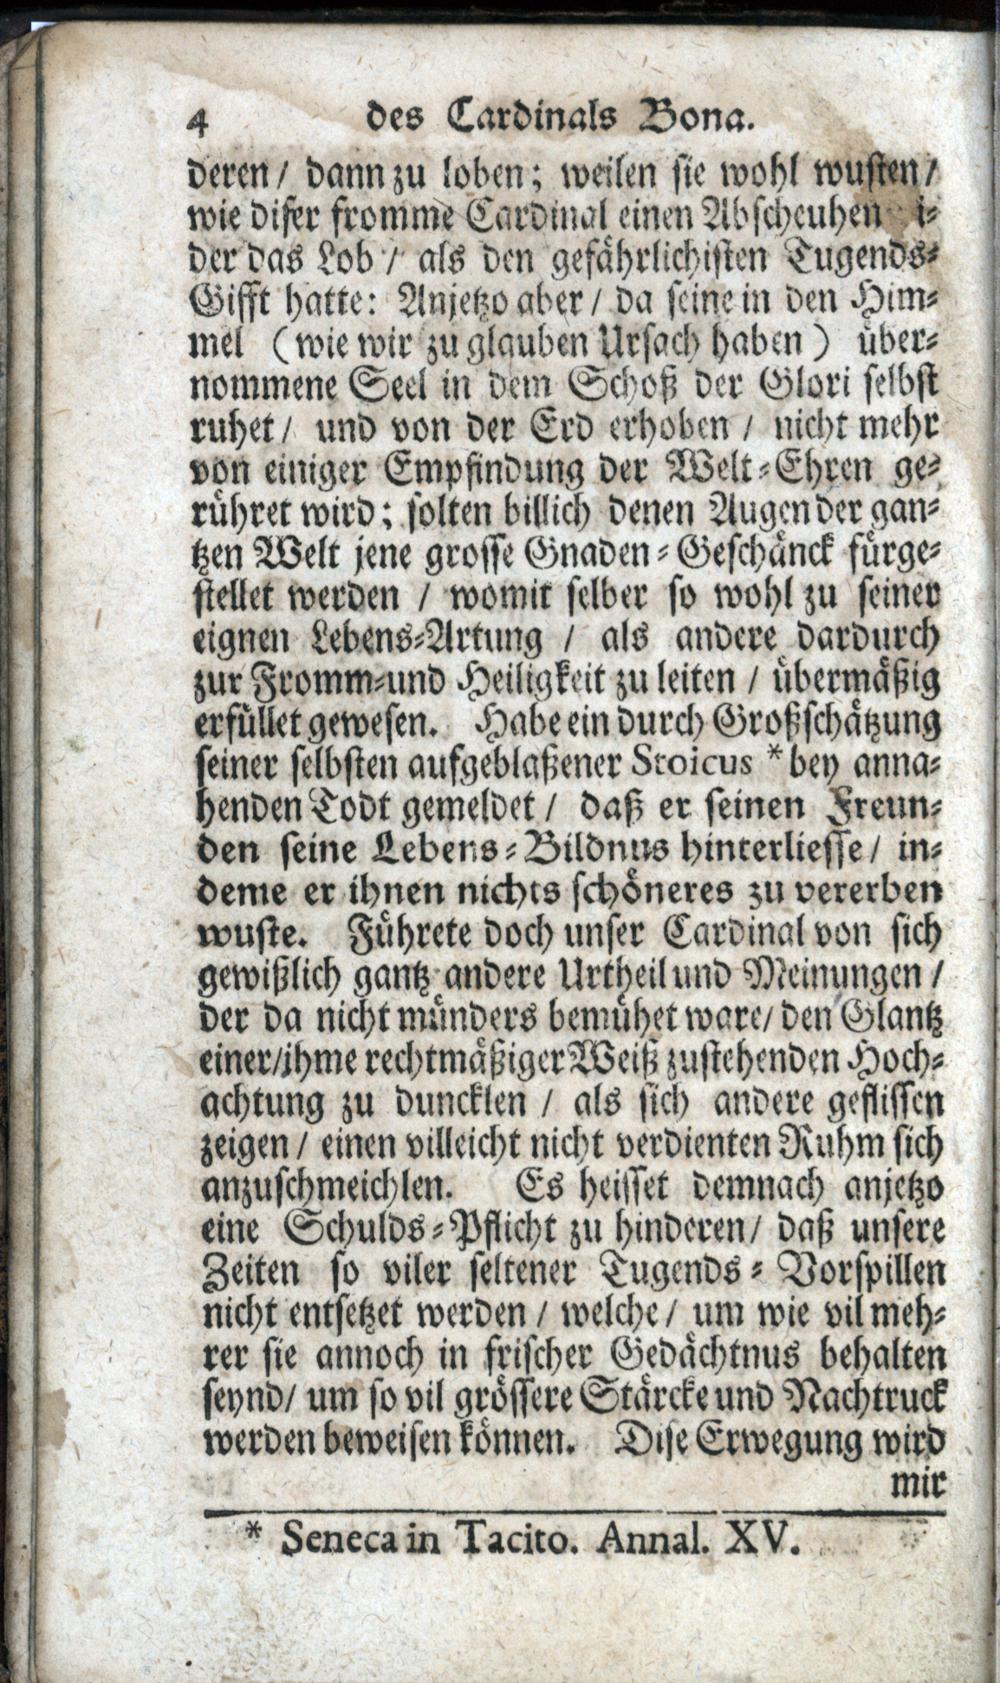 4 des Cardinals Bona.
deren / dann zu loben; weilen sie wohl wusten /
wie diser fromme Cardinal einen Abscheuhen i-
der das Lob / als den gefährlichisten Tugends-
Gifft hatte: Anjetzo aber / da seine in den Him-
mel (wie wir zu glauben Ursach haben) über-
nommene Seel in dem Schoß der Glori selbst
ruhet / und von der Erd erhoben / nicht mehr
von einiger Empfindung der Welt-Ehren ge-
rühret wird; solten billich denen Augen der gan-
tzen Welt jene grosse Gnaden-Geschänck fürge-
stellet werden / womit selber so wohl zu seiner
eignen Lebens-Artung / als andere dardurch
zur Fromm-und Heiligkeit zu leiten / übermäßig
erfüllet gewesen. Habe ein durch Großschätzung
seiner selbsten aufgeblaßener Stoicus * bey anna-
henden Todt gemeldet / daß er seinen Freun-
den seine Lebens-Bildnus hinterliesse / in-
deme er ihnen nichts schöneres zu vererben
wuste. Führete doch unser Cardinal von sich
gewißlich gantz andere Urtheil und Meinungen /
der da nicht münders bemühet ware / den Glantz
einer / ihme rechtmäßiger Weiß zustehenden Hoch-
achtung zu duncklen / als sich andere geflissen
zeigen / einen villeicht nicht verdienten Ruhm sich
anzuschmeichlen. Es heisset demnach anjetzo
eine Schulds-Pflicht zu hinderen / daß unsere
Zeiten so viler seltener Tugends-Vorspillen
nicht entsetzet werden / welche / um wie vil meh-
rer sie annoch in frischer Gedächtnus behalten
seynd / um so vil grössere Stärcke und Nachtruck
werden beweisen können. Dise Erwegung wird
mir
* Seneca in Tacito. Annal. XV.